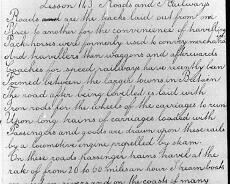 Lesson 143 Roads and Railways
Roads are the tracks laid out from one
place to another for the convenience of travelling
Pack horses were formerly used to convey merchandise
and travellers then waggons and afterwards
coaches for speed railways have recently been
formed between the larger towns in Britain
The road after being levelled is laid with
iron rods for the wheels of the carriages to run
upon long trains of carriages loaded with
Passengers and goods are drawn upon these rails
by a locomotive engine propelled by steam.
On these roads passenger trains travel at the
rate of from 20 to 60 miles an hour Steam boats
rivers and on the coasts of many